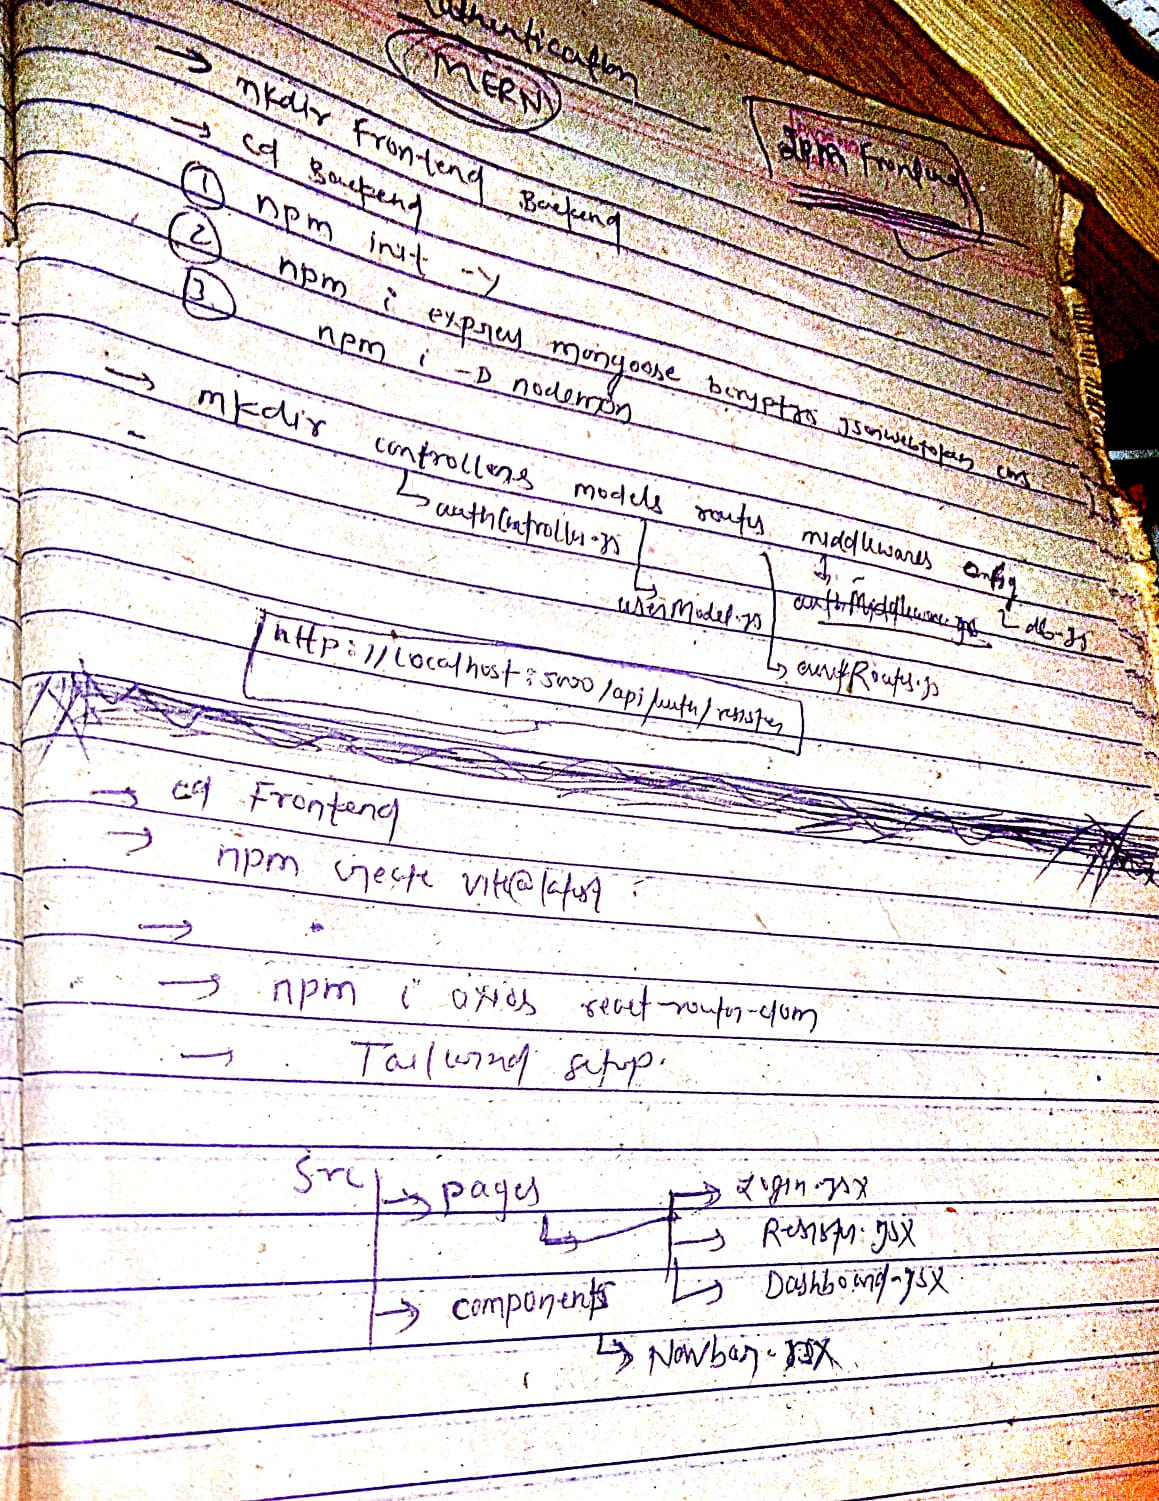 Authentication
MERN
2pm Frontend
→ mkdir Frontend Backend
→ cd Backend
① npm init -y
② npm i express mongoose bcryptjs jsonwebtoken cors
③ npm i -D nodemon
→ mkdir controllers models routes middlewares config
authController.js
userModel.js
authMiddleware.js
db.js
authRoutes.js
http://localhost:5000/api/auth/register
→ cd Frontend
→ npm create vite@latest
→
→ npm i axios react-router-dom
→ Tailwind setup.
Src
→ pages
→ Login.jsx
→ Register.jsx
→ Dashboard.jsx
→ components
↳ Navbar.jsx